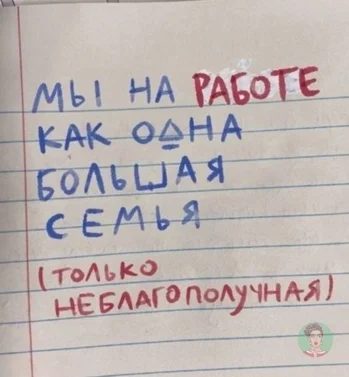 МЫ НА РАБОТЕ
КАК ОДНА
БОЛЬШАЯ
СЕМЬЯ
(ТОЛЬКО
НЕБЛАГОПОЛУЧНАЯ)